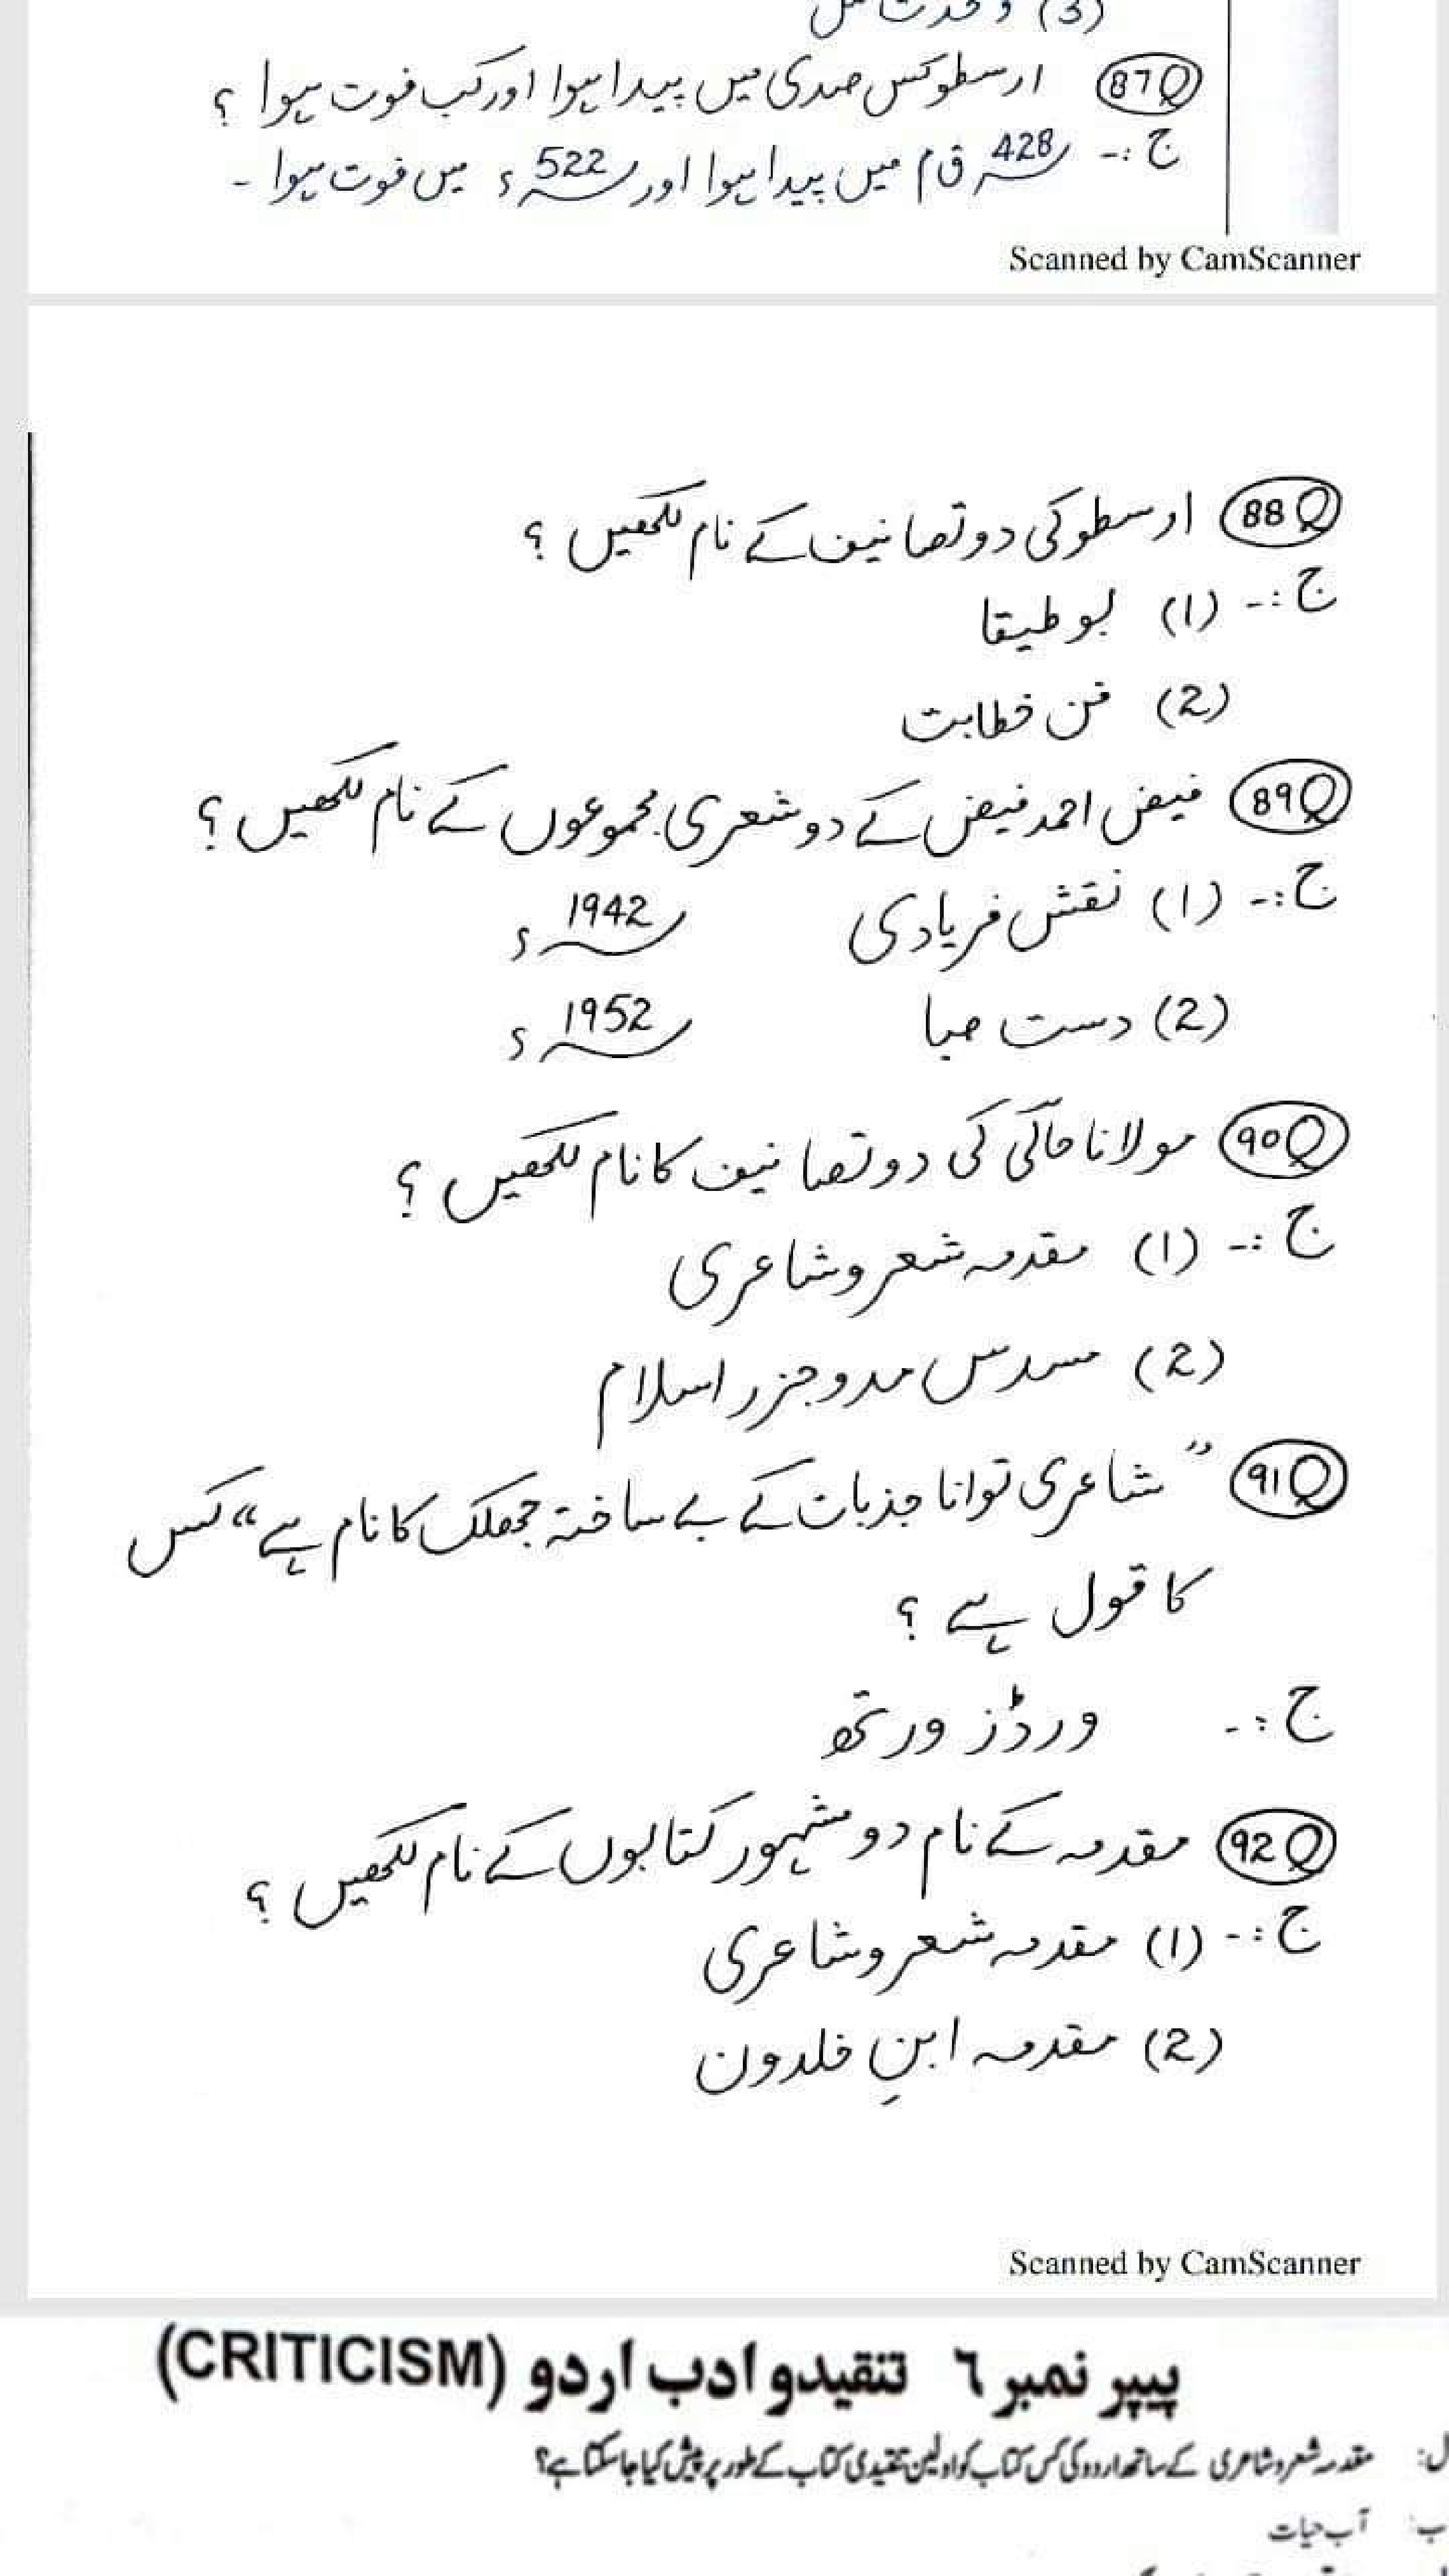 (3) وحدت عمل
Q87 ارسطو کس صدی میں پیدا ہوا اور کب فوت ہوا ؟
ج :۔ 428 ق م میں پیدا ہوا اور 522ء میں فوت ہوا ۔
Scanned by CamScanner
Q88 ارسطو کی دو تصانیف کے نام لکھیں ؟
ج :۔ (1) بوطیقا
(2) فن خطابت
Q89 فیض احمد فیض کے دو شعری مجموعوں کے نام لکھیں ؟
ج :۔ (1) نقش فریادی 1942ء
(2) دست صبا 1952ء
Q90 مولانا حالی کی دو تصانیف کا نام لکھیں ؟
ج :۔ (1) مقدمہ شعر و شاعری
(2) مسدس مدوجزر اسلام
Q91 "شاعری توانا جذبات کے بے ساختہ جھلک کا نام ہے" کس
کا قول ہے ؟
ج :۔ ورڈز ورتھ
Q92 مقدمہ کے نام دو مشہور کتابوں کے نام لکھیں ؟
ج :۔ (1) مقدمہ شعر و شاعری
(2) مقدمہ ابنِ خلدون
Scanned by CamScanner
پیپر نمبر ٦ تنقید و ادب اردو (CRITICISM)
ل: مقدمہ شعر و شاعری کے ساتھ اردو کی کس کتاب کو اولین تنقیدی کتاب کے طور پر پیش کیا جا سکتا ہے؟
ب: آب حیات